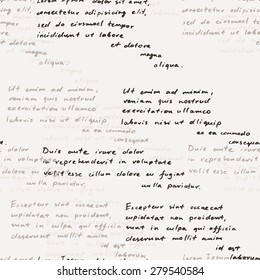 Lorem ipsum dolor sit amet,
consectetur adipiscing elit,
sed do eiusmod tempor
incididunt ut labore
et dolore
magna
aliqua.
Ut enim ad minim
veniam quis nostrud
exercitation ullamco
laboris nisi ut aliquip
ex ea commodo
consequat
Ut enim ad minim
veniam quis nostrud
exercitation ullamco
laboris nisi ut aliquip
ex ea commodo
consequat
Duis aute irure dolor
in reprehenderit in voluptate
velit esse cillum dolore eu fugiat
nulla pariatur.
nulla pariatur.
Excepteur sint occaecat
cupidatat non proident,
sunt in culpa qui officia
deserunt mollit anim
id est
laborum.
Excepteur sint occaecat
cupidatat non proident,
sunt in culpa qui officia
deserunt mollit anim
id est
shutterstock
279540584